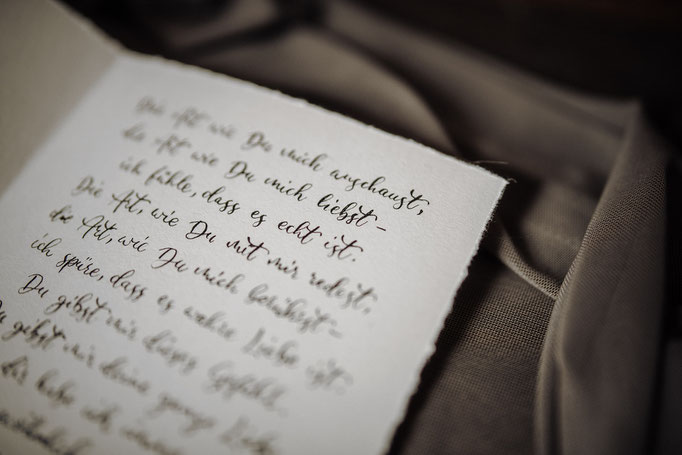 Die Art wie Du mich anschaust,
die Art wie Du mich liebst –
ich fühle, dass es echt ist.
Die Art, wie Du mit mir redest,
die Art, wie Du mich berührst –
ich spüre, dass es wahre Liebe ist.
Du gibst mir dieses Gefühl,
Du gibst mir deine ganze Liebe